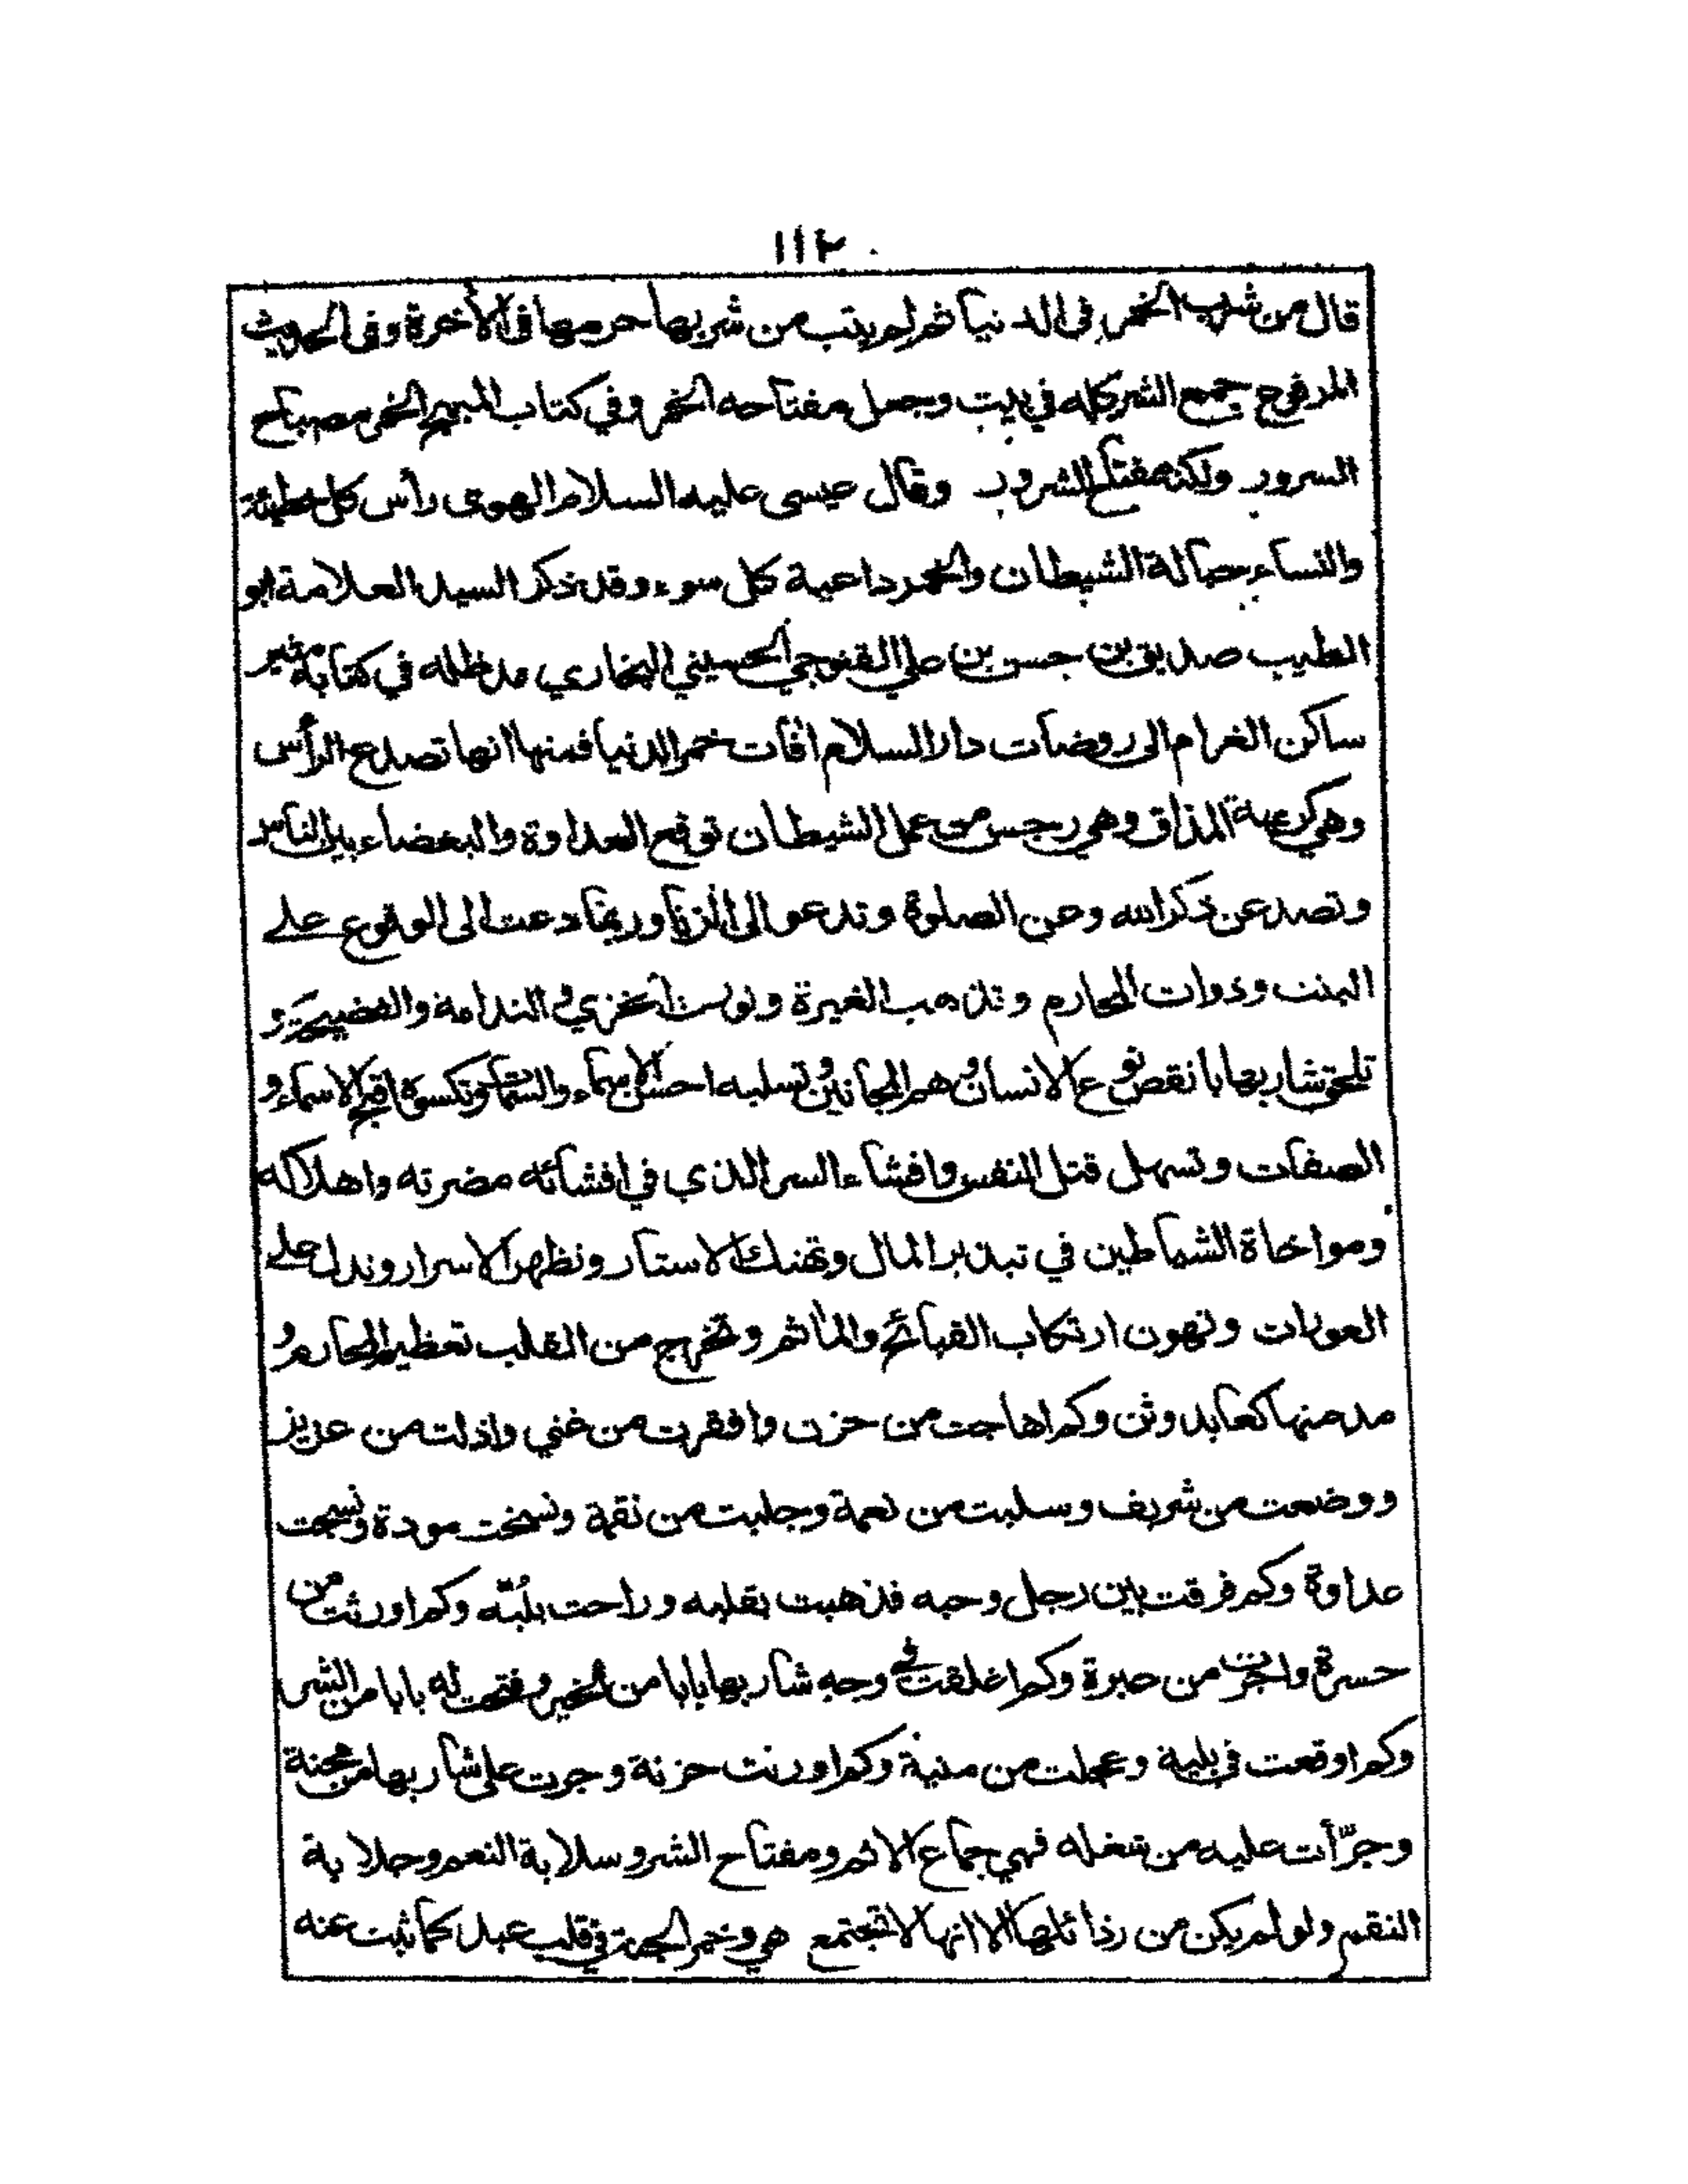 ١١٢
قال من شرب الخمر فى الدنيا ثم لم يتب من شربها حرمها فى الأخرة وفى الحديث
المرفوع جمع الشر كله في بيت وجعل مفتاحه الخمر وفي كتاب المبهج الخمر مصباح
السرور ولكنه مفتاح الشرور وقال عيسى عليه السلام الهوى رأس كل خطيئة
والنساء حبالة الشيطان والخمر داعية كل سوء وقد ذكر السيد العلامة ابو
الطيب صديق بن حسن بن علي القنوجي الحسيني البخاري مد ظله في كتابه مثير
ساكن الغرام الى روضات دار السلام افات خمر الدنيا فمنها انها تصدع الرأس
وهي كريهة المذاق وهي رجس من عمل الشيطان توقع العداوة والبغضاء بين الناس
وتصد عن ذكر الله وعن الصلوة وتدعو الى الزنا وربما دعت الى الوقوع على
البنت وذوات المحارم وتذهب الغيرة وتورث الخزي والندامة والفضيحة و
تلحق شاربها بانقص نوع الانسان وهم المجانين وتسلبه احسن الاسماء والسمات وتكسوه اقبح الاسماء و
الصفات وتسهل قتل النفس وافشاء السر الذي في افشائه مضرته واهلاكه
ومواخاة الشياطين في تبذير المال وتهتك الاستار وتظهر الاسرار وتدل على
العورات وتهون ارتكاب القبائح والمأثم وتخرج من القلب تعظيم المحارم و
مدمنها كعابد وثن وكم اهاجت من حزن وافقرت من غني واذلت من عزيز
ووضعت من شريف وسلبت من نعمة وجلبت من نقمة ونسخت مودة ونسجت
عداوة وكم فرقت بين رجل وحبه فذهبت بقلبه وراحت بلُبّه وكم اورثت من
حسرة واجرت من عبرة وكم اغلقت في وجه شاربها بابا من الخير وفتحت له بابا من الشر
وكم اوقعت في بلية وعجلت من منية وكم اورثت حزنة وجرت على شاربها من محنة
وجرّأت عليه من سفلة فهي جماع الاثم ومفتاح الشر وسلابة النعم وجلابة
النقم ولو لم يكن من رذائلها الا انها لا تجتمع هي وخمر الجنة في قلب عبد كما ثبت عنه